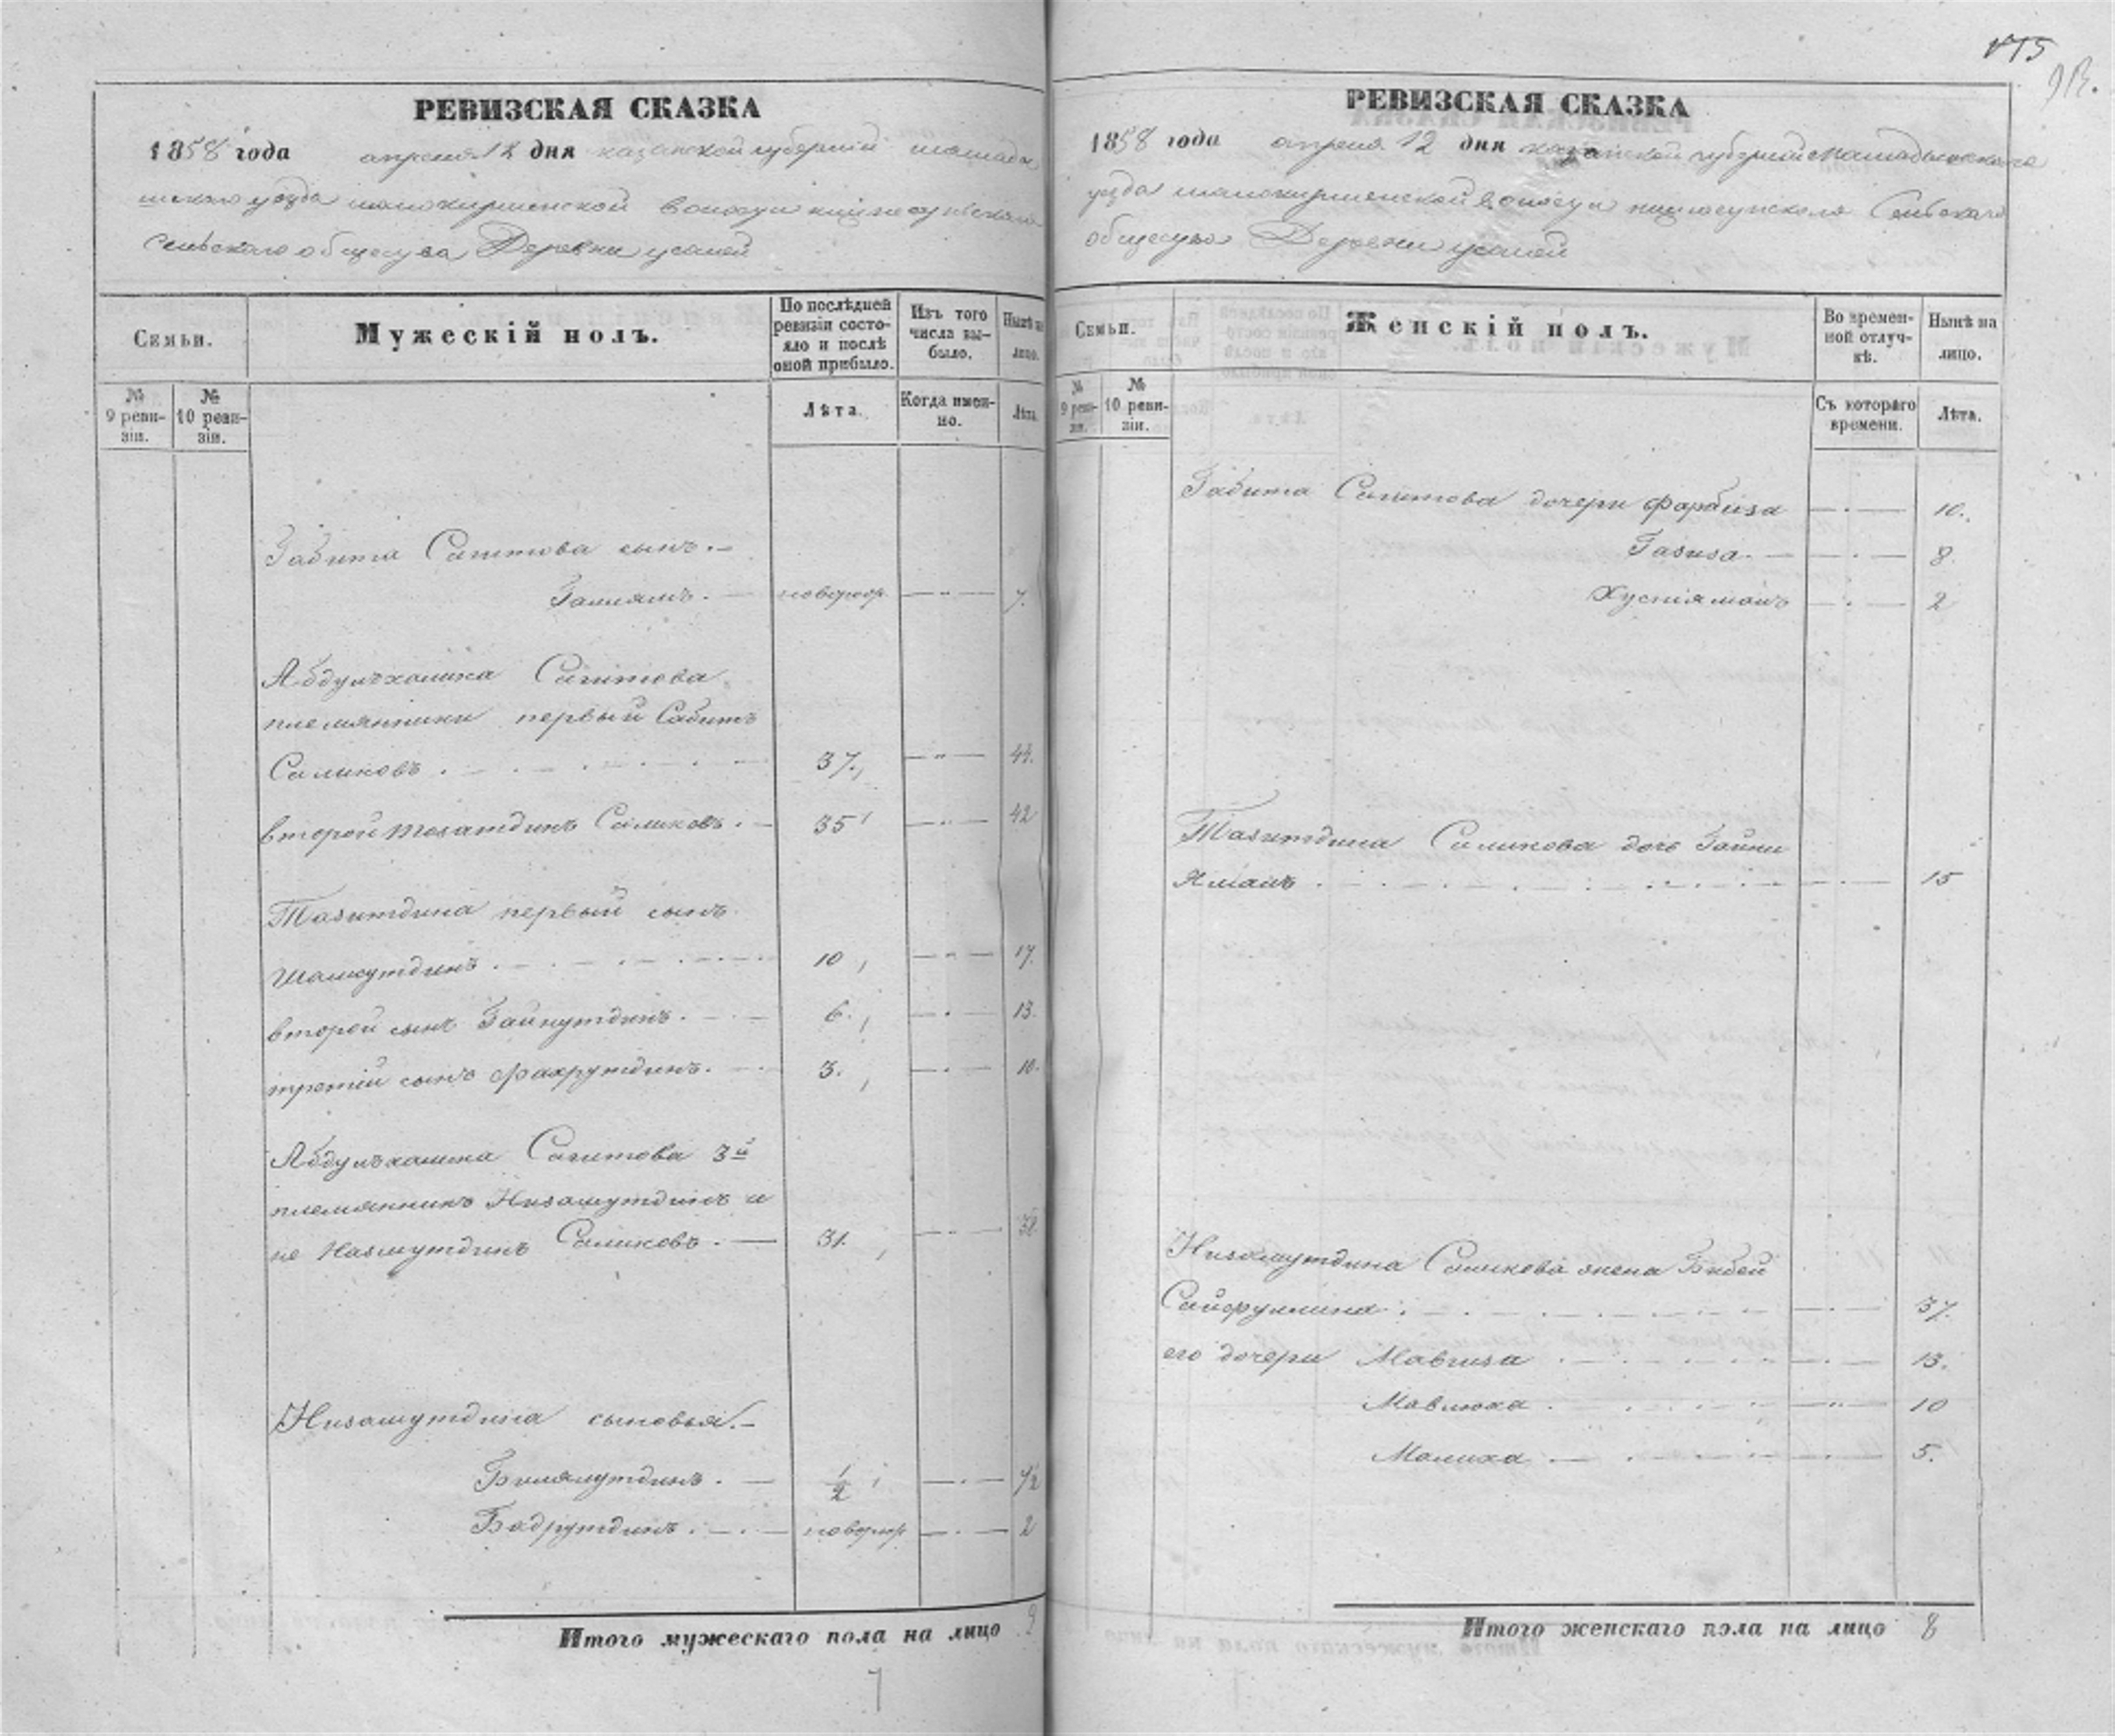 РЕВИЗСКАЯ СКАЗКА
1858 года апреля 12 дня казанской губернiи мамады
шскаго уезда волости
Сельскаго общества Деревни
Семьи.
Мужескій полъ.
По послѣдней ревизіи состояло и послѣ оной прибыло.
Изъ того числа выбыло.
Нынѣ на лицо.
№ 9 ревизіи.
№ 10 ревизіи.
Лѣта.
Когда именно.
Лѣта.
Габита Сагитова сынъ.
новорож. 7.
Сагитова
племянники первый Сабитъ
Саликовъ 37. 44.
второй Саликовъ. 35 42
Тазитдина первый сынъ
10 17.
второй сынъ Зайнутдинъ. 6. 13.
третій сынъ Фахрутдинъ. 3. 10.
Сагитова 3й
племянникъ Низамутдинъ и
не Назмутдинъ Саликовъ. 31. 38
Низамутдина сыновья
Билялутдинъ. 1/2 7 1/2
Бадрутдинъ. новорож 2
Итого мужескаго пола на лицо 9
РЕВИЗСКАЯ СКАЗКА
1858 года апреля 12 дня казанской губернiи мамадышскаго
уезда волости Сельскаго
общества Деревни
Семьи.
Женскій полъ.
Во временной отлучкѣ.
Нынѣ на лицо.
№ 9 ревизіи.
№ 10 ревизіи.
Съ котораго времени.
Лѣта.
Габита Сагитова дочери 10.
Газиза. 8
2
Тазитдина Саликова дочь Зайни
Ямалъ 15
Низамутдина Саликова жена Бибей
Сайфуллина 37.
его дочери Мавлиза 13.
Мавлюха 10
Малиха 5.
Итого женскаго пола на лицо 8